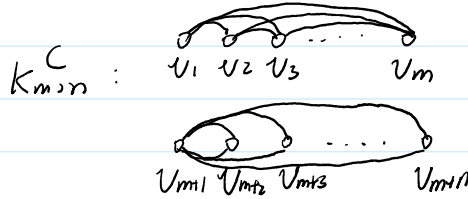 K_{m,n}^C :
v1 v2 v3 ..... vm
vm+1 vm+2 vm+3 .... vm+n